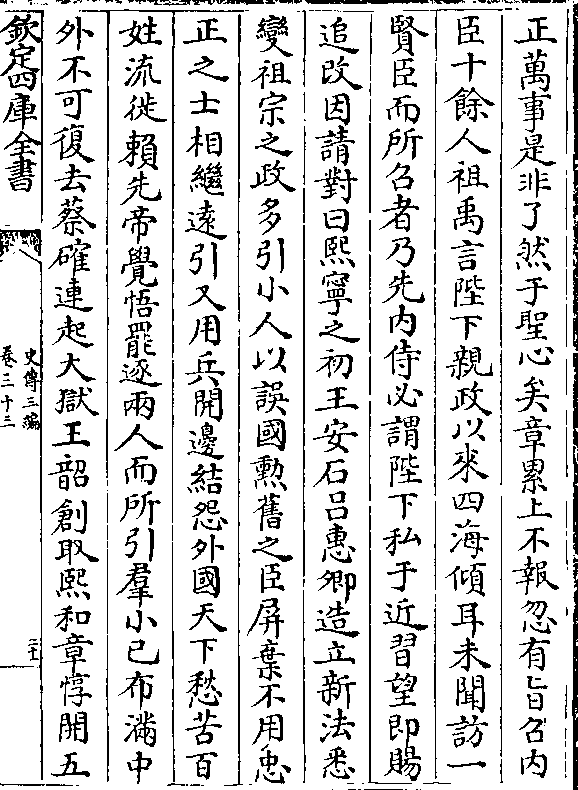 正萬事是非了然于聖心矣章累上不報忽有旨召内
臣十餘人祖禹言陛下親政以來四海傾耳未聞訪一
賢臣而所召者乃先内侍必謂陛下私于近習望即賜
追改因請對曰熙寧之初王安石吕惠卿造立新法悉
變祖宗之政多引小人以誤國勲舊之臣屏棄不用忠
正之士相繼遠引又用兵開邊結怨外國天下愁苦百
姓流徙賴先帝覺悟罷逐兩人而所引羣小已布滿中
外不可復去蔡確連起大獄王韶創取熙和章惇開五
欽定四庫全書
史傳三編
卷三十三
三十